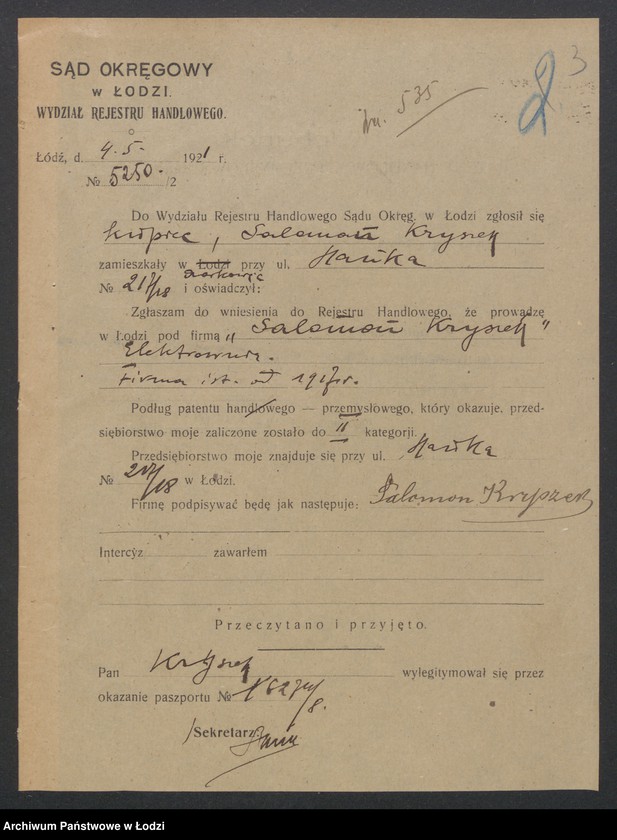 3
SĄD OKRĘGOWY
w ŁODZI.
WYDZIAŁ REJESTRU HANDLOWEGO.
535
Łódź, d. 4.5. 1921 r.
№ 5250. /2
Do Wydziału Rejestru Handlowego Sądu Okręg. w Łodzi zgłosił się
kupiec, Salomon Kryszek
zamieszkały w Łodzi przy ul.
№ i oświadczył:
Zgłaszam do wniesienia do Rejestru Handlowego, że prowadzę
w Łodzi pod firmą "Salomon Kryszek"
Firma ist. od 1917 r.
Podług patentu handlowego — przemysłowego, który okazuje, przed-
siębiorstwo moje zaliczone zostało do II kategorji.
Przedsiębiorstwo moje znajduje się przy ul.
№ w Łodzi.
Firmę podpisywać będę jak następuje: Salomon Kryszek
Intercyz zawarłem
Przeczytano i przyjęto.
Pan Kryszek wylegitymował się przez
okazanie paszportu №
Sekretarz:
Archiwum Państwowe w Łodzi